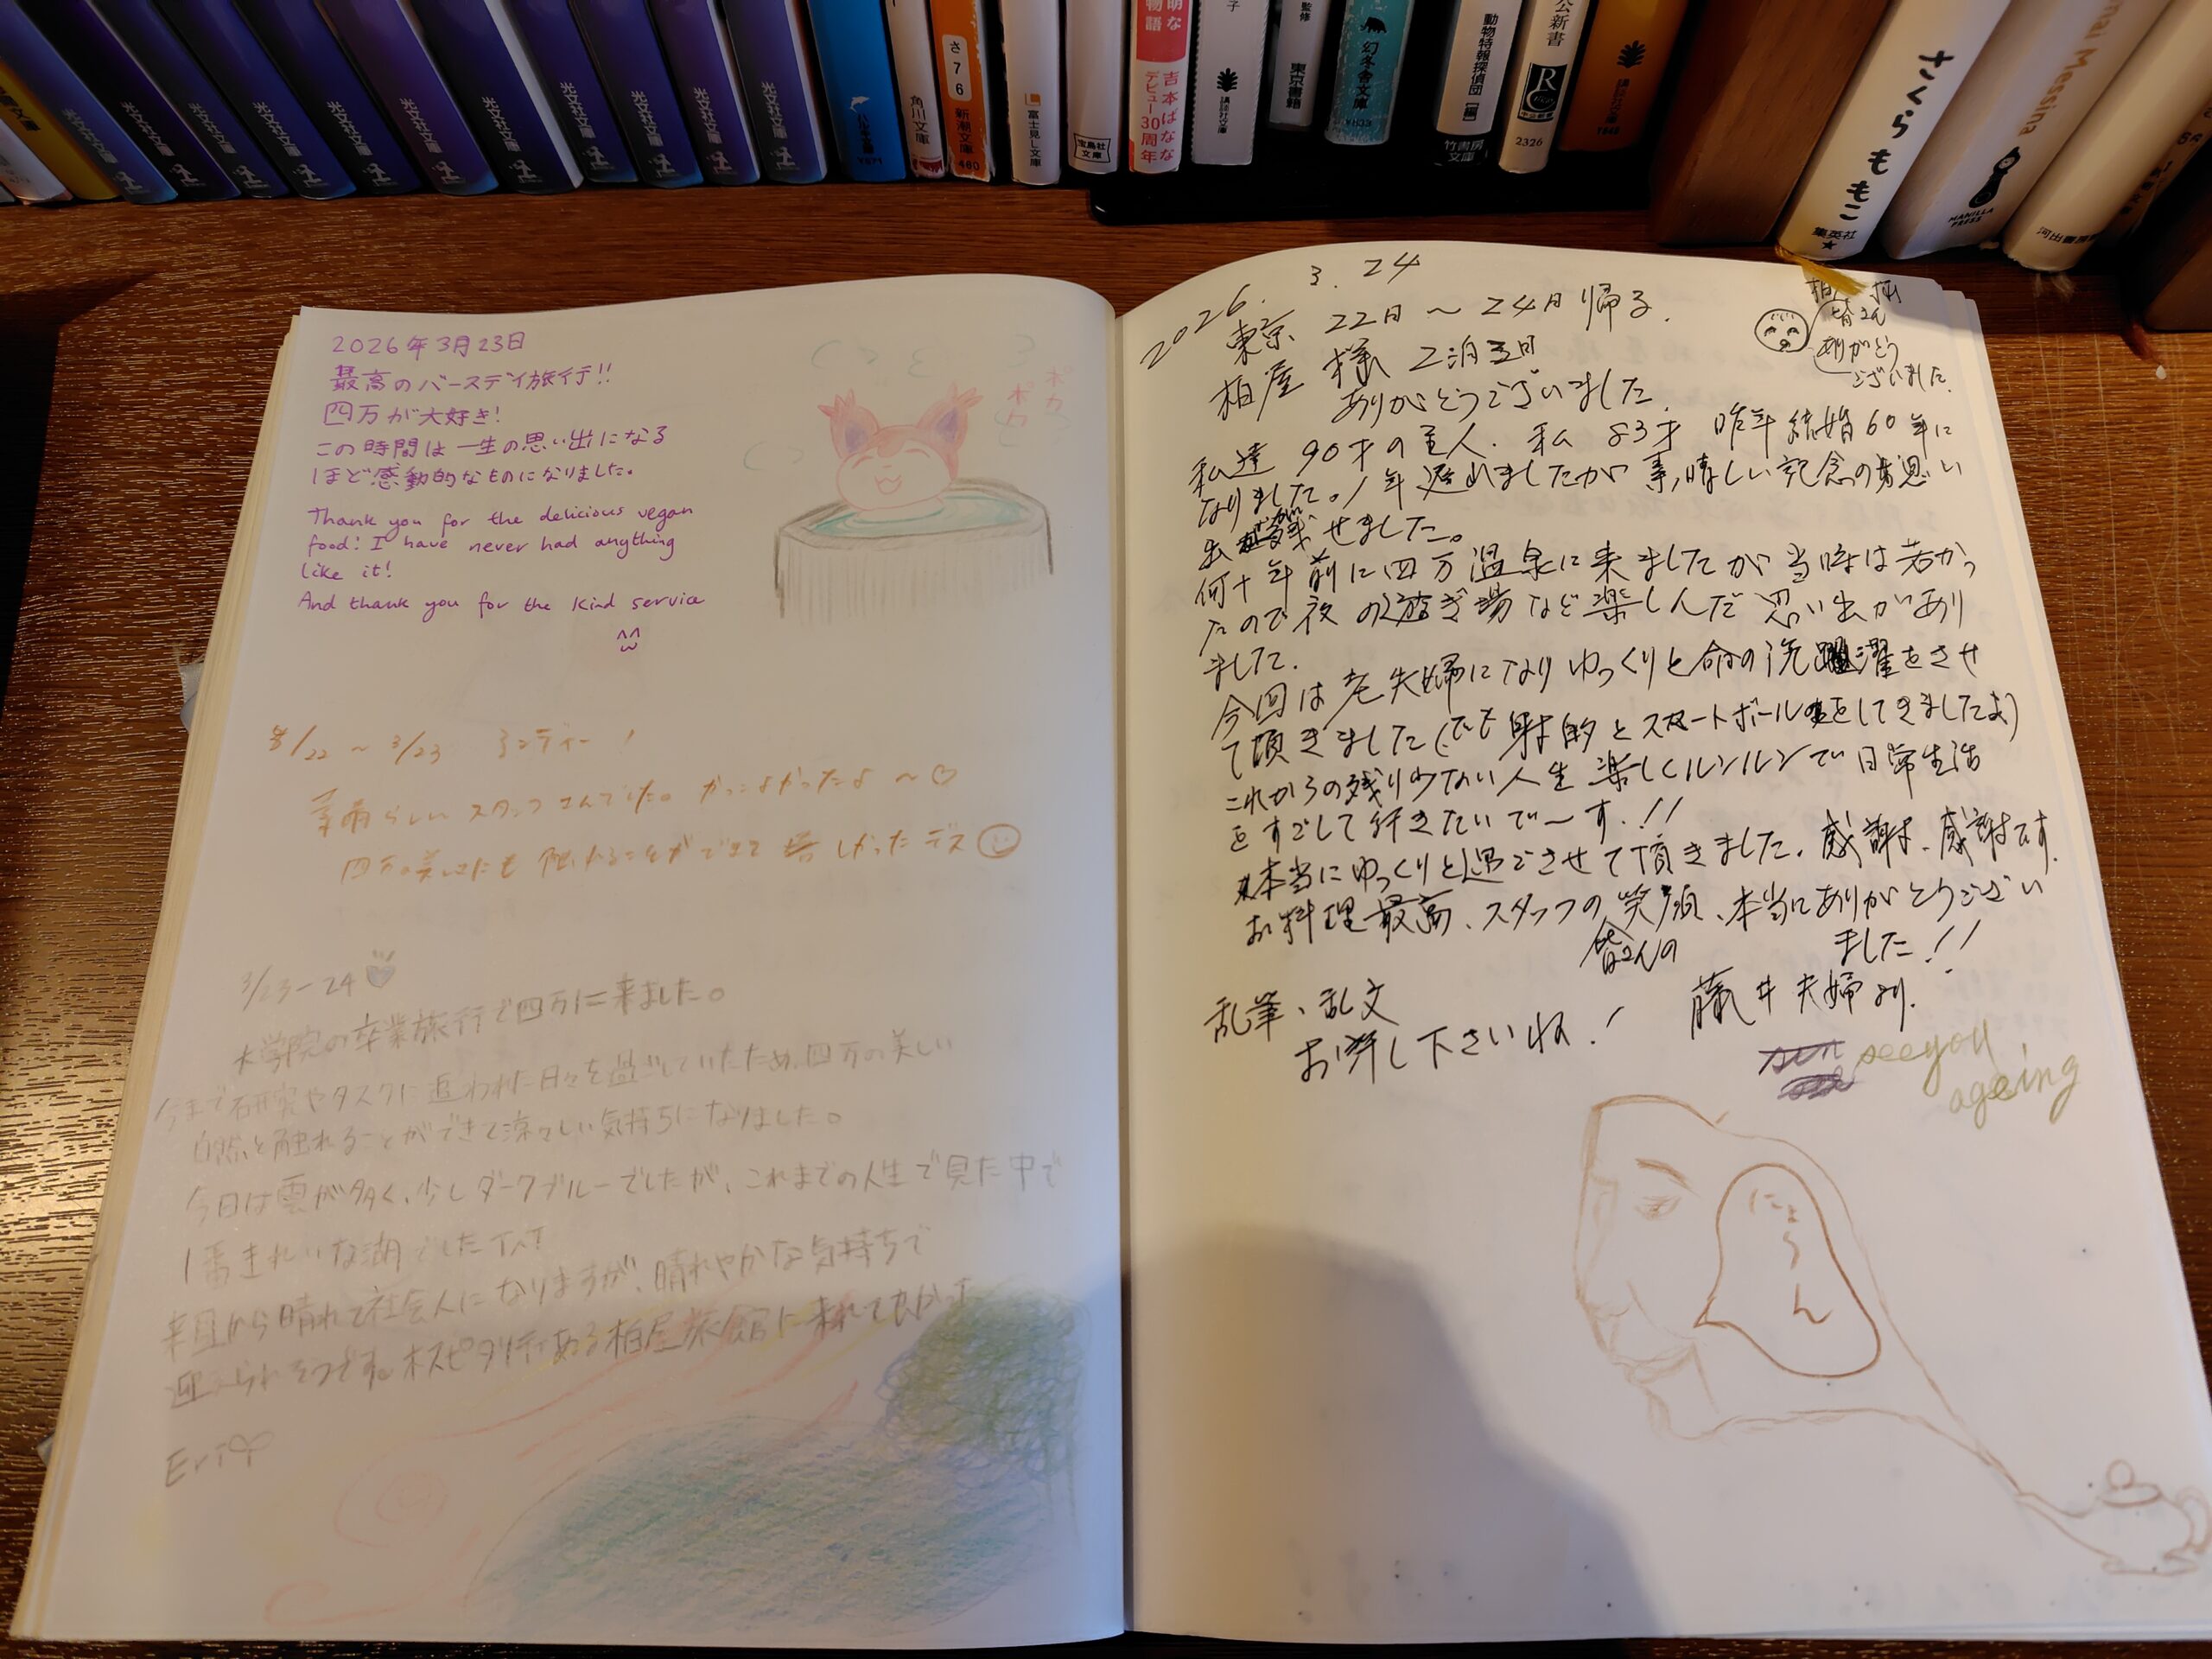 光文社文庫
光文社文庫
光文社文庫
光文社文庫
光文社文庫
光文社文庫
光文社文庫
光文社文庫
光文社文庫
ハルキ文庫
角川文庫
さ
7
6
新潮文庫
480
富士見L文庫
宝島社
文庫
吉本ばなな
デビュー30周年
講談社文庫
監修
東京書籍
幻冬舎文庫
動物特報探偵団[編]
竹書房
文庫
公新書
2326
講談社文庫
さくらももこ
集英社
Messina
MANILLA
PRESS
河出書房
2026年3月23日
最高のバースデイ旅行!!
四万が大好き!
この時間は一生の思い出になる
ほど感動的なものになりました。
Thank you for the delicious vegan
food! I have never had anything
like it!
And thank you for the kind service
ポカ
ポカ
3/22 ~ 3/23
素晴らしいスタッフさんでした。かっこよかったよ~♡
四万の美しさにも触れることができて嬉しかったデス
3/23-24
大学院の卒業旅行で四万に来ました。
今まで研究やタスクに追われた日々を過ごしていたため、四万の美しい
自然と触れることができて清々しい気持ちになりました。
今日は雲が多く、少しダークブルーでしたが、これまでの人生で見た中で
1番きれいな湖でした
から晴れて社会人になりますが、晴れやかな気持ちで
迎えられそうです。ホスピタリティある柏屋旅館に来れてよかった
Eri
2026. 3. 24
東京 22日~24日帰る.
柏屋 様 2泊3日
ありがとうございました.
皆さん
ありがとう
ございました.
私達 90才の主人. 私 83才 昨年結婚60年に
なりました。1年遅れましたが素晴しい記念の思い
出 せました。
何十年前に四万温泉に来ましたが当時は若かっ
たので夜の遊ぎ場など楽しんだ思い出があり
ました.
今回は老夫婦になりゆっくりと命の洗濯をさせ
て頂きました(でも射的とスマートボールをしてきましたよ)
これからの残り少ない人生楽しくルンルンで日常生活
をすごして行きたいで~す.!!
本当にゆっくりと過ごさせて頂きました. 感謝、感謝です.
お料理最高、スタッフの笑顔、本当にありがとうござい
皆さんの
ました!!
乱筆、乱文
お許し下さいね!
藤井夫婦より.
see you
ageing
にょ
ろ
ん